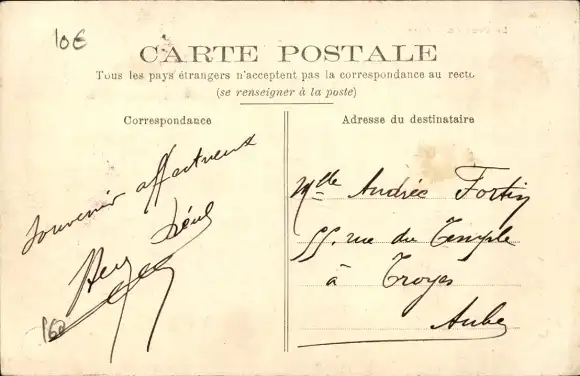 10€
CARTE POSTALE
Tous les pays étrangers n'acceptent pas la correspondance au recto
(se renseigner à la poste)
Correspondance
Souvenir affectueux
160
Adresse du destinataire
Mlle Andrée Fortin
55. rue du Temple
à Troyes
Aube